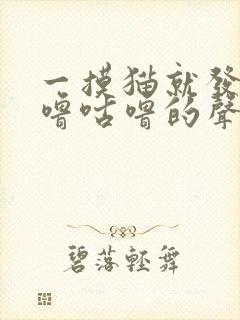 一摸猫就發
嚕咕嚕的聲
碧落輕舞